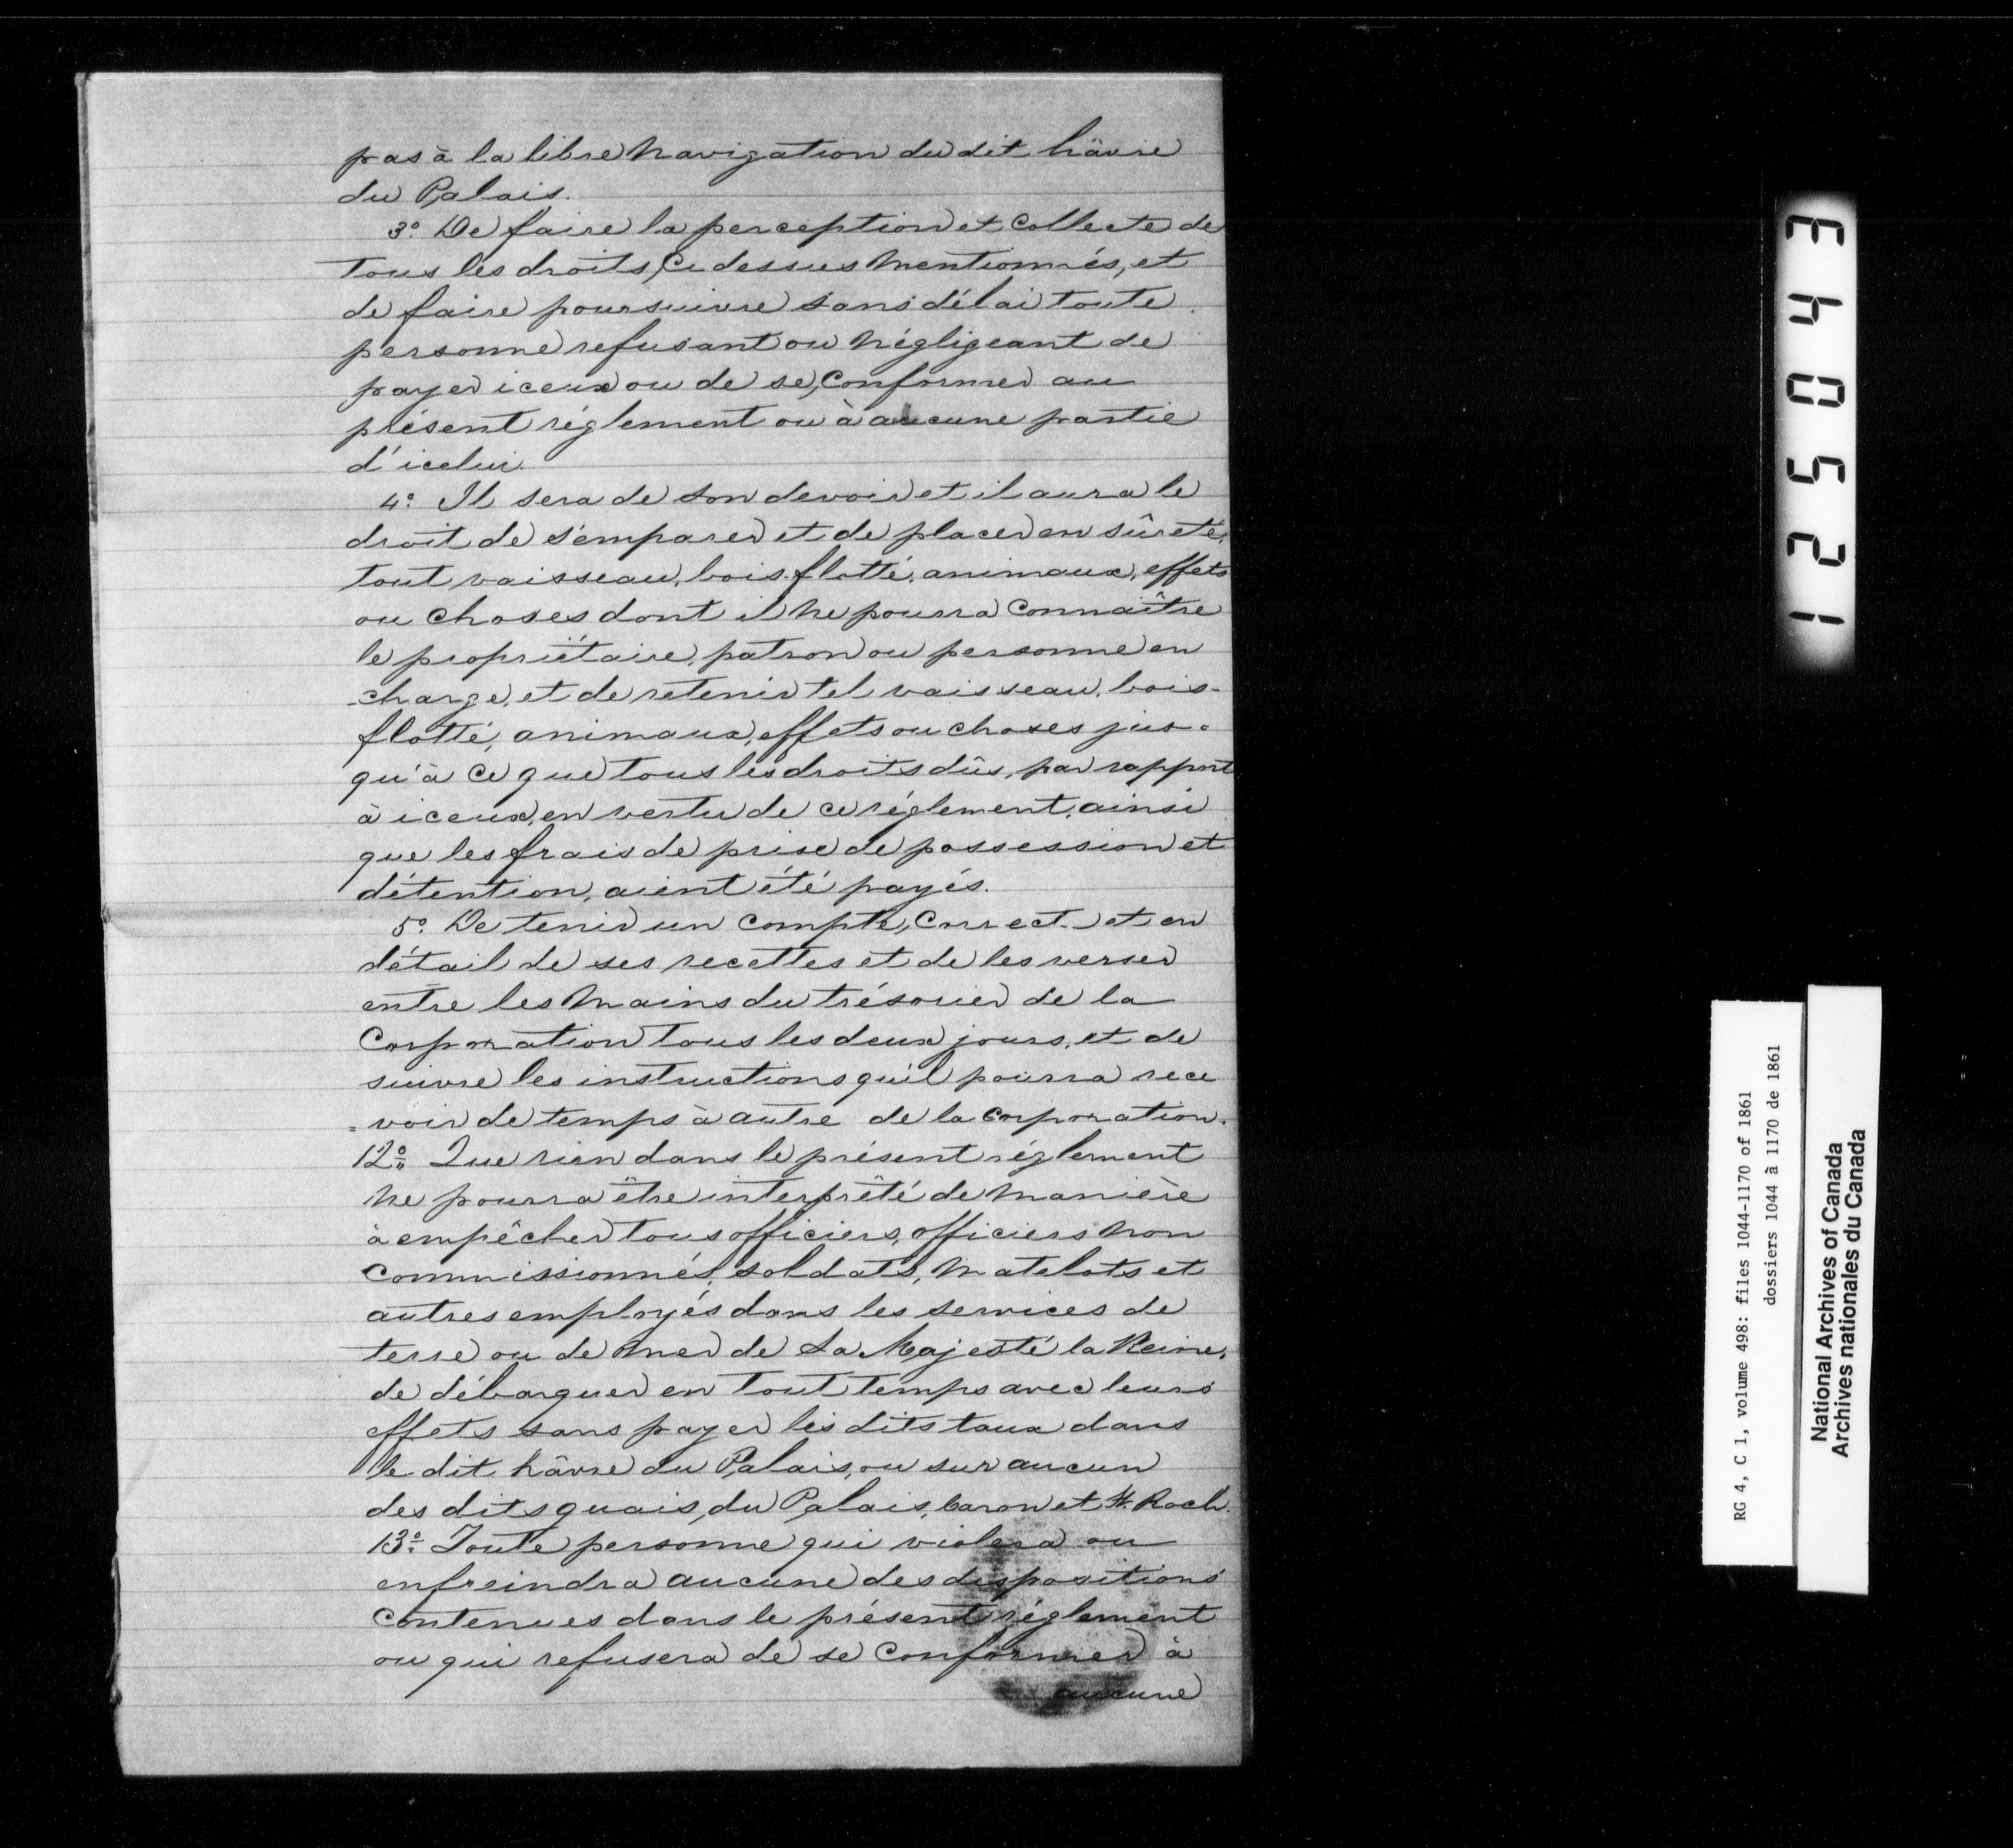 pas à la libre navigation du dit hâvre
du Palais.
3° De faire la perception et collecte de
tous les droits ci dessus mentionnés, et
de faire poursuivre sans délai toute
personne refusant ou négligeant de
payer iceux ou de se conformer au
présent réglement ou à aucune partie
d'icelui.
4° Il sera de son devoir et il aura le
droit de s'emparer et de placer en sûreté,
tout vaisseau, bois-flotté, animaux, effets
ou choses dont il ne pourra connaître
le propriétaire, patron ou personne en
charge, et de retenir tel vaisseau, bois-
flotté, animaux, effets ou choses jus-
qu'à ce que tous les droits dûs, par rapport
à iceux, en vertu de ce réglement, ainsi
que les frais de prise de possession et
détention, aient été payés.
5° De tenir un compte, correct et en
détail de ses recettes et de les verser
entre les mains du trésorier de la
Corporation tous les deux jours, et de
suivre les instructions qu'il pourra rece
=voir de temps à autre de la corporation.
12° Que rien dans le présent réglement
ne pourra être interprêté de manière
à empêcher tous officiers, officiers non
commissionnés, soldats, matelots et
autres employés dans les services de
terre ou de mer de Sa Majesté la Reine,
de débarquer en tout temps avec leurs
effets sans payer les dits taux dans
le dit hâvre du Palais, ou sur aucun
des dits quais, du Palais, Caron et St. Roch.
13° Toute personne qui violera ou
enfreindra aucune des dispositions
contenues dans le présent réglement
ou qui refusera de se conformer à
aucune
125043
RG 4, C 1, volume 498: files 1044-1170 of 1861
dossiers 1044 à 1170 de 1861
National Archives of Canada
Archives nationales du Canada